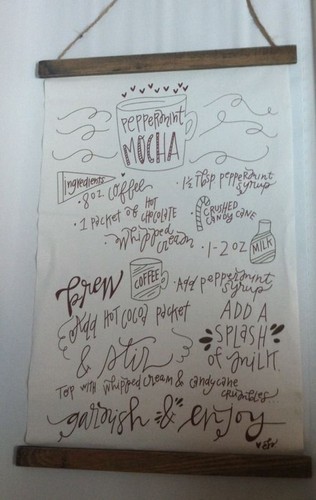 PEPPERMINT
MOCHA
Ingredients
• 8oz coffee
• 1½ Tbsp peppermint syrup
• 1 packet of hot chocolate
• CRUSHED CANDY CANE
• whipped cream
• 1-2 oz MILK
brew COFFEE
Add peppermint syrup
Add HOT COCOA PACKET
& stir
ADD A
SPLASH
of MILK
TOP WITH whipped cream & candy cane
crumbles...
garnish & enjoy